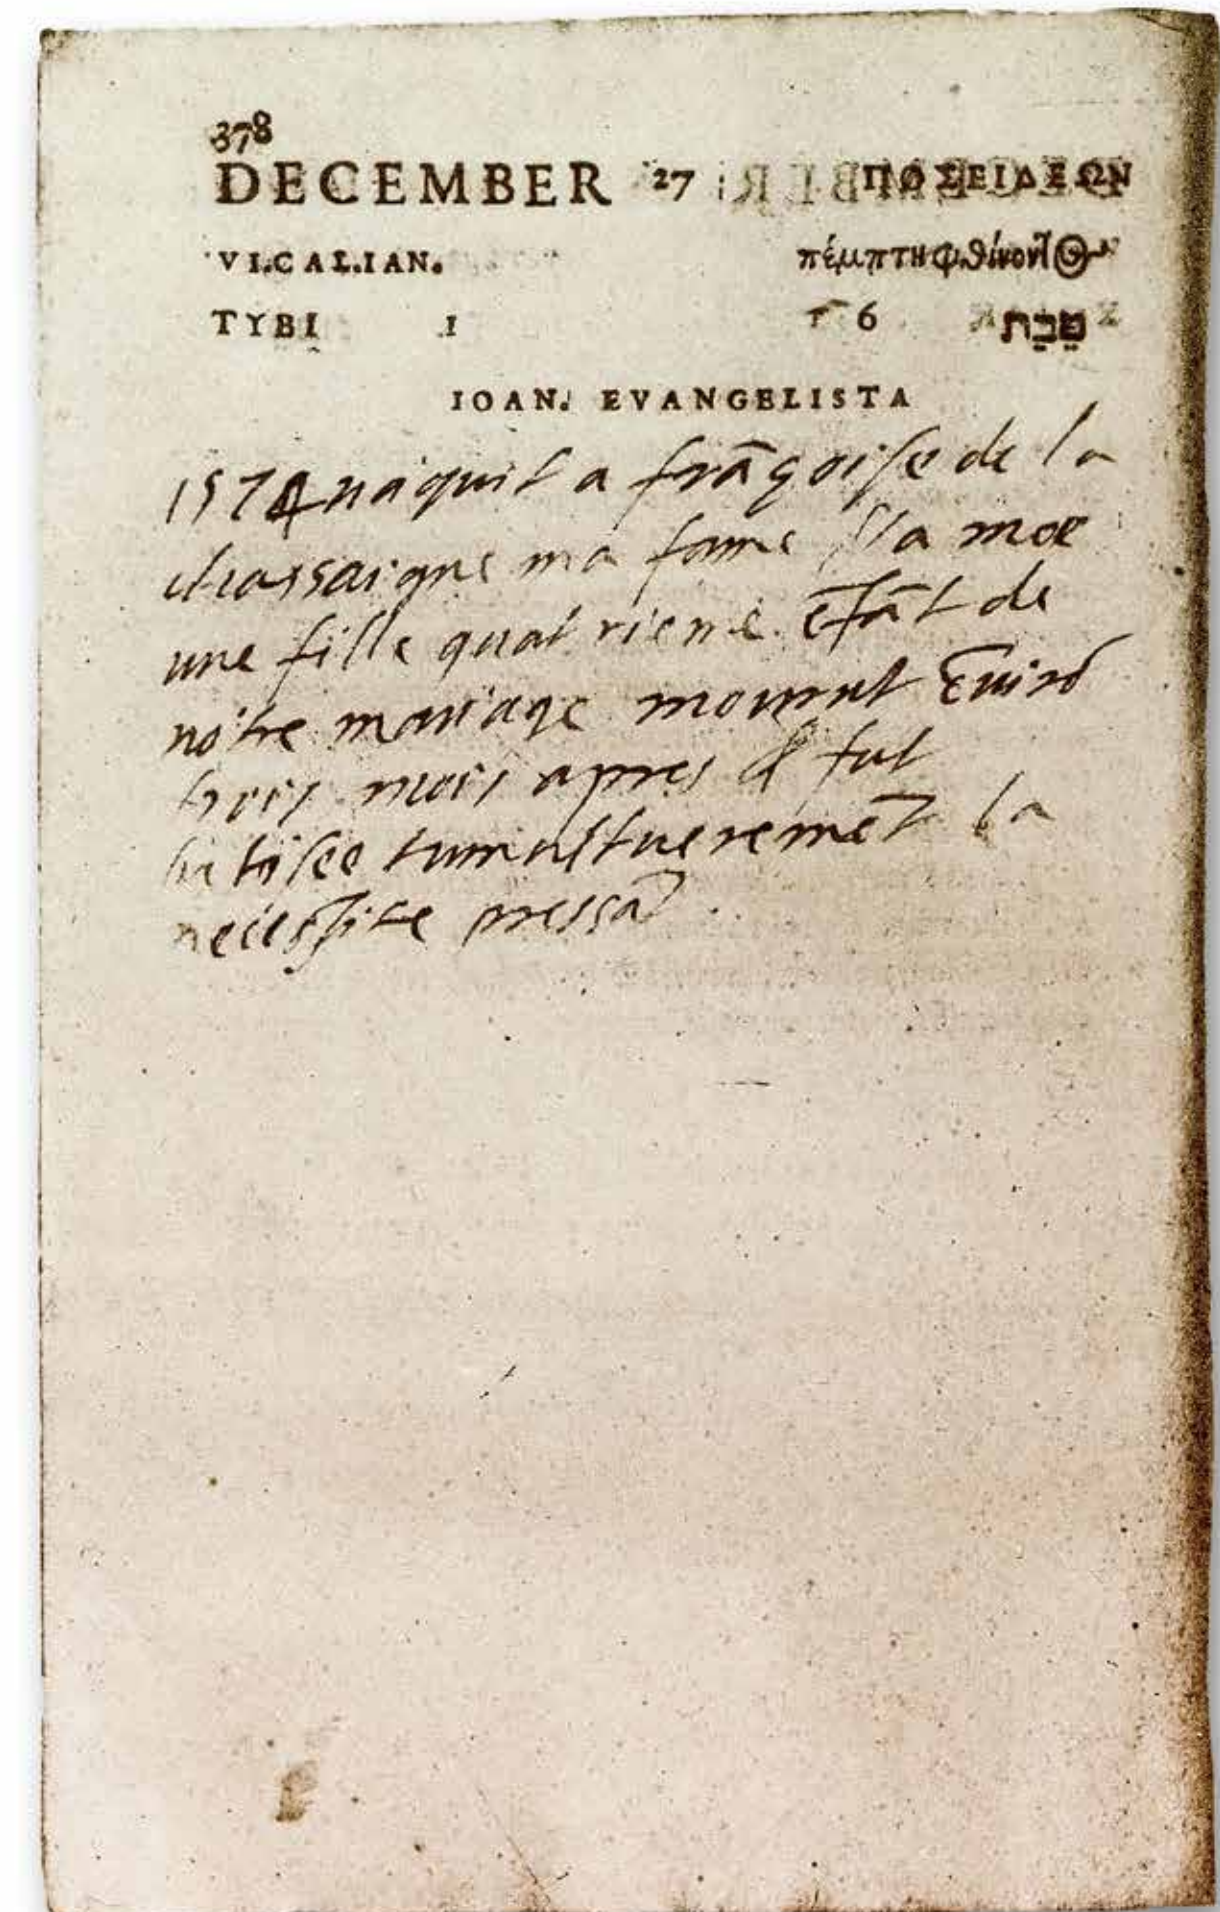 378
DECEMBER 27 ΠΟΣΕΙΔΕΩΝ
VI.CAL.IAN. πέμπτη φθίνοντ
TYBI I 6 טֵבֵת
IOAN. EVANGELISTA
1574 naquit a frāçoise de la
chassaigne ma fame & a moe
une fille quatrieme ēfāt de
notre mariage mourut ēuirō
trois mois apres & fut
batisee tumultueremēt la
necessite pressāt